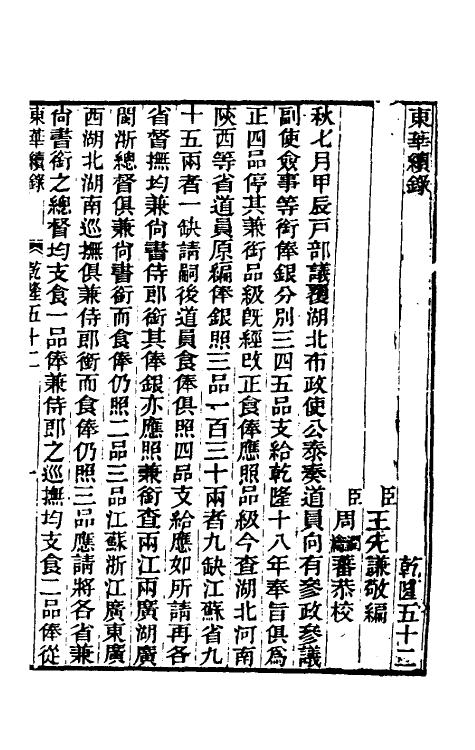 東華續錄
乾隆五十二
臣王先謙敬編
臣周潤蕃恭校
秋七月甲辰戸部議覆湖北布政使公泰奏道員向有參政參議
副使僉事等銜俸銀分別三四五品支給乾隆十八年奉旨俱爲
正四品停其兼銜品級既經改正食俸應照品級今查湖北河南
陝西等省道員原編俸銀照三品一百三十兩者九缺江蘇省九
十五兩者一缺請嗣後道員食俸俱照四品支給應如所請再各
省督撫均兼尙書侍郎銜其俸銀亦應照兼銜查兩江兩廣湖廣
閩浙總督俱兼尙書銜而食俸仍照二品三品江蘇浙江廣東廣
西湖北湖南巡撫俱兼侍郎銜而食俸仍照三品應請將各省兼
尙書銜之總督均支食一品俸兼侍郎之巡撫均支食二品俸從
東華續錄 乾隆五十二 一